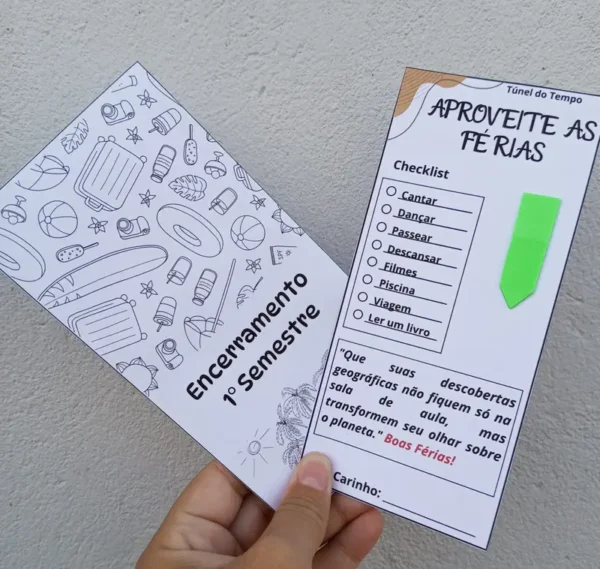 Encerramento
1º Semestre
Túnel do Tempo
APROVEITE AS
FÉRIAS
Checklist
Cantar
Dançar
Passear
Descansar
Filmes
Piscina
Viagem
Ler um livro
"Que suas descobertas
geográficas não fiquem só na
sala de aula, mas
transformem seu olhar sobre
o planeta." Boas Férias!
Carinho: